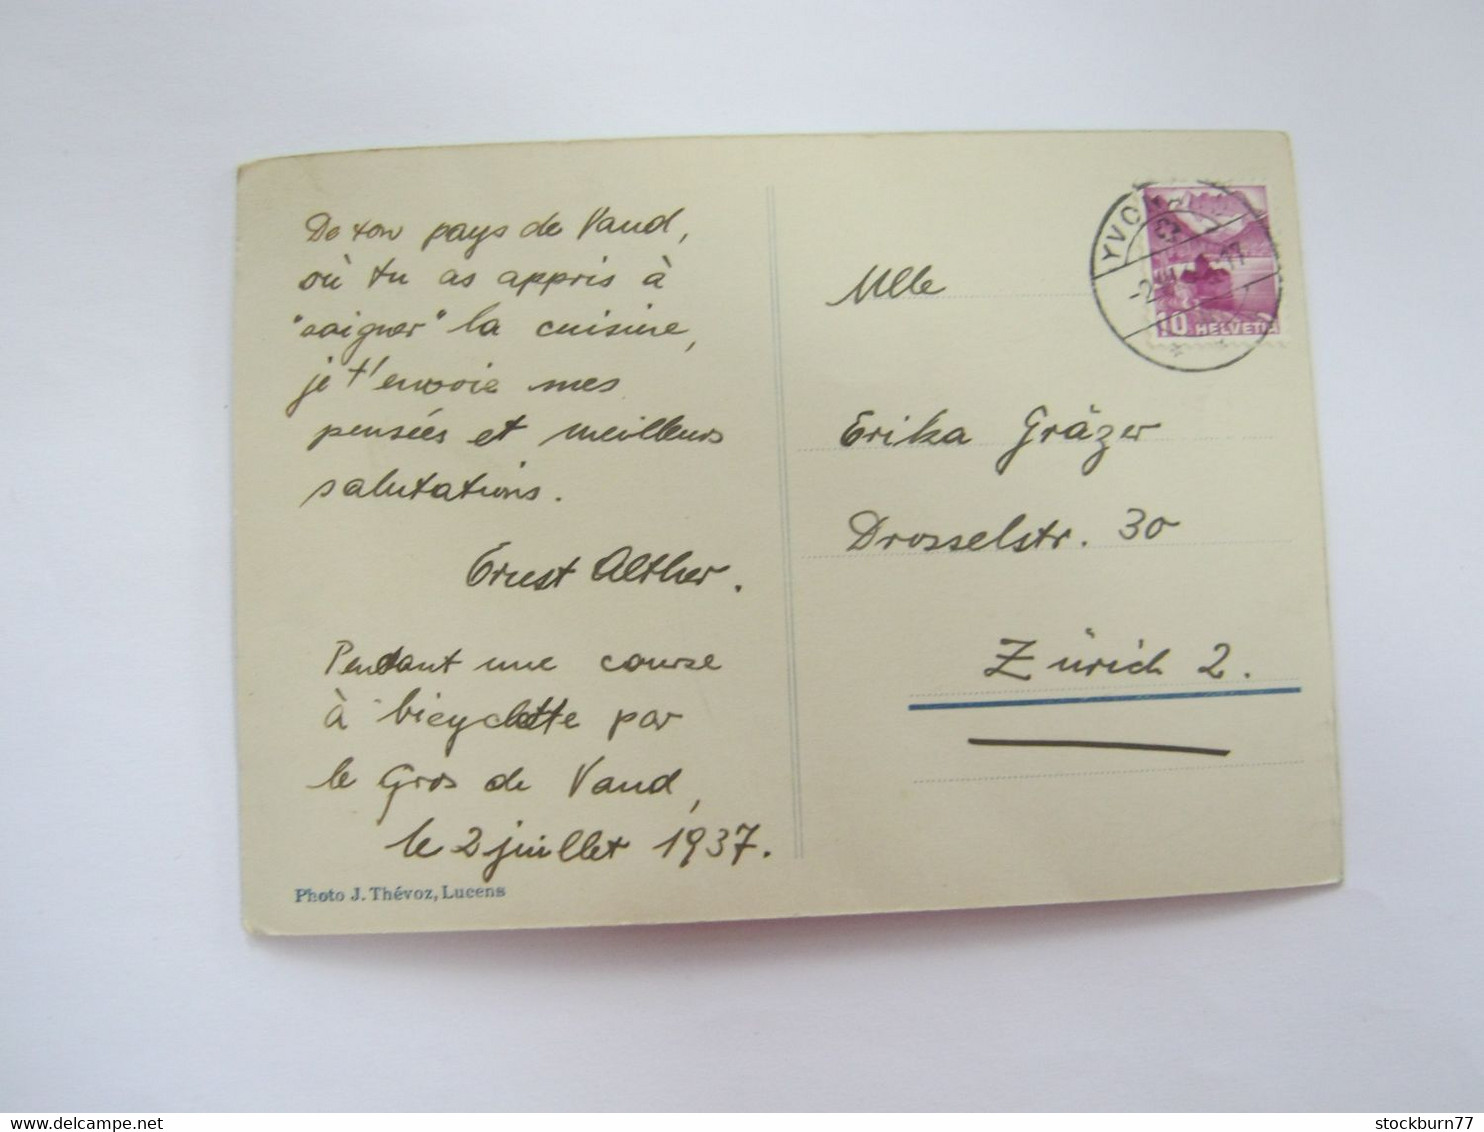 De ton pays de Vaud,
où tu as appris à
"soigner" la cuisine,
je t'envoie mes
pensées et meilleurs
salutations.
Ernst Alther.
Pendant une course
à bicyclette par
le Gros de Vaud,
le 2 juillet 1937.
Photo J. Thévoz, Lucens
Mlle
Erika Gräzer
Drosselstr. 30
Zürich 2.
10 HELVETIA
stockburn77